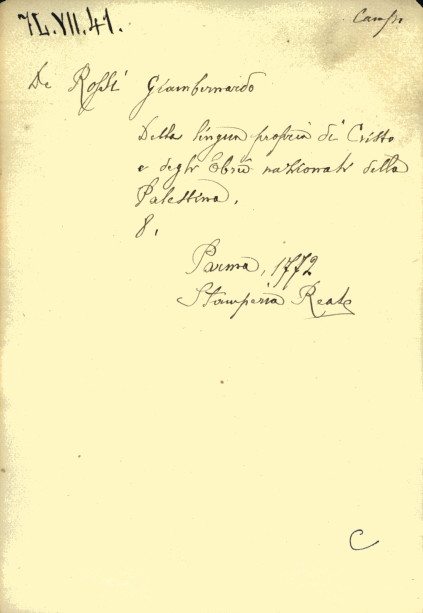 71.VII.41.
Campo
De Rossi Giambernardo
Della lingua propria di Cristo
e degli Ebrei nazionali della
Palestina.
8.
Parma, 1772
Stamperia Reale
C